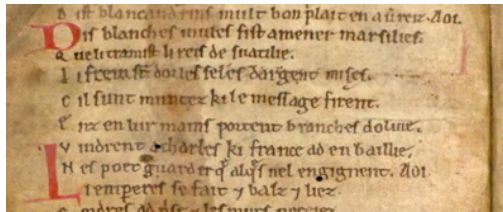 d ist blancandrins mult bon plait en aureiz. Aoi.
Dis blanches mules fist amener marsilies.
Que li tramist li reis de suatilie.
Li frein sunt dor les seles dargent mises.
Cil sunt muntez ki le message firent.
En lur mains portent branches doliue.
Vindrent a charles ki france ad en baillie.
Nes poet guarder q̃ alq̃s nel engignent. Aoi
Li empereres se fait ⁊ balz ⁊ liez.